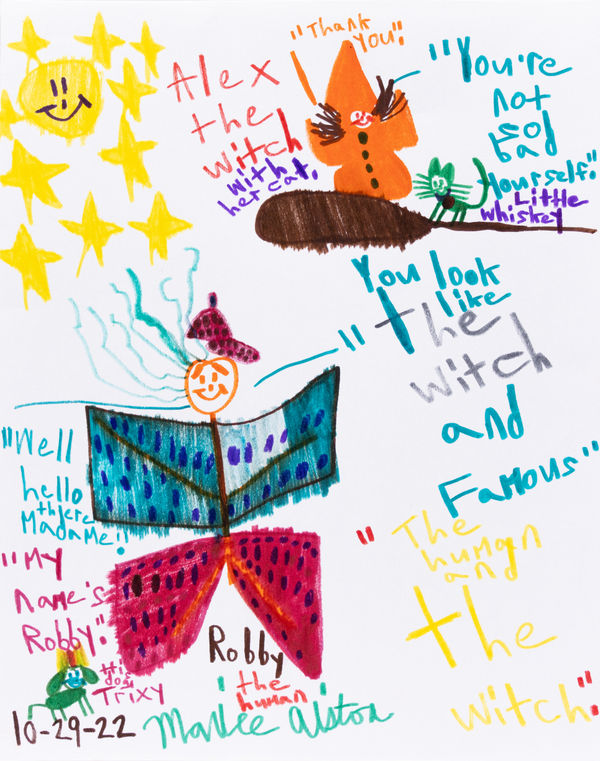 "Thank
You".
Alex
the
Witch
with
her cat.
"You're
not
so
bad
yourself".
Little
Whiskey
You look
like
"the
witch
and
Famous"
"Well
hello
there
Madame"!
"My
name's
Robby".
His
dog
Trixy
Robby
the
human
"The
human
and
the
witch".
10-29-22